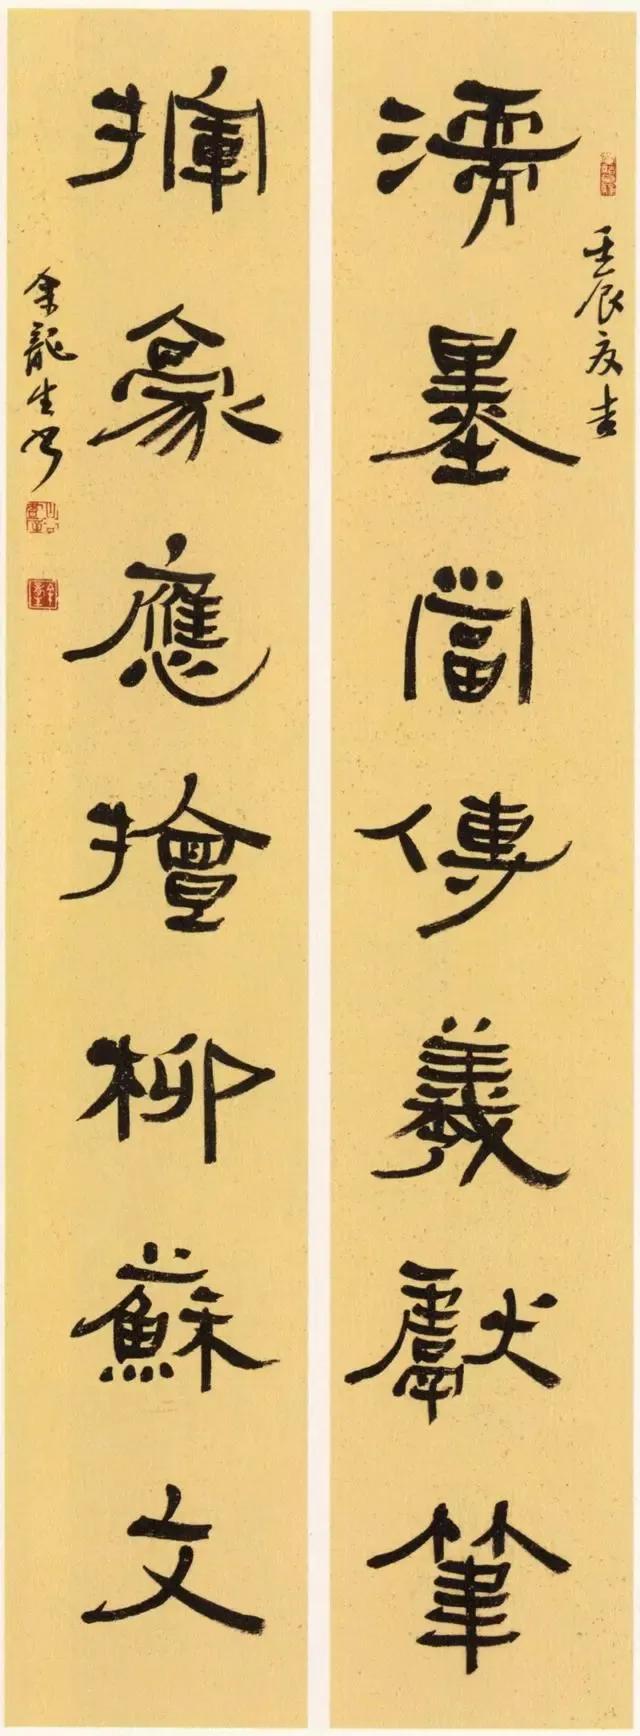 壬辰夏吉
濡墨當傳羲獻筆
揮豪應擅柳蘇文
余龍生書